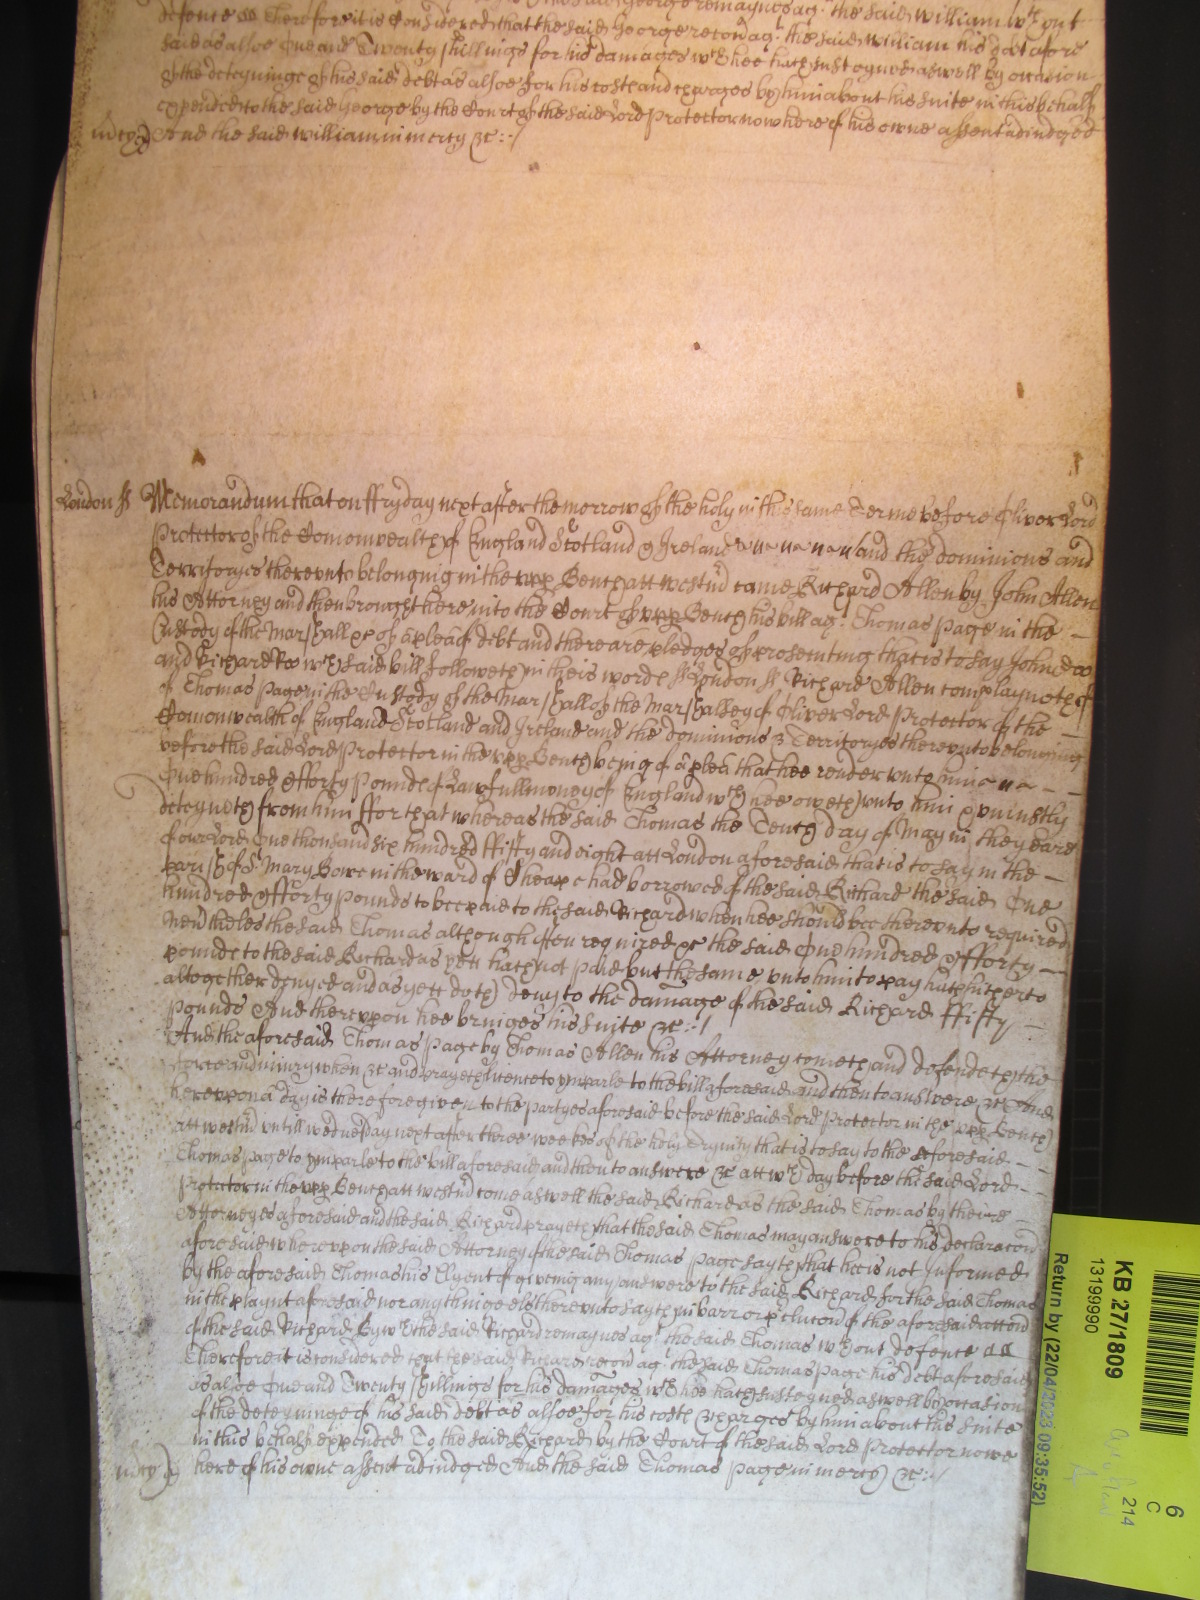 the said George remaynes ag.t the said William w.th out
defence Therefore it is Considered that the said George recov ag.t the said William his debt afore
said as alsoe One and Twenty shillings for his damages w.ch hee hath susteyned aswell by occasion
of the deteyninge of his said debt as alsoe for his costs and charges by him about his suite in this behalf
expended to the said George by the Court of the said Lord Protector now here of his owne assent adiudged
And the said William in mercy &c :/
London ss Memorandum that on ffryday next after the morrow of the holy in this same Terme before Oliver Lord
Protector of the Comonwealth of England Scotland & Ireland and the dominions and
Territoryes thereunto belonging in the upp Bench att westm̃ came Richard Allen by John Allen
his Attorney and then brought here into the Court of upp Bench his bill ag.t Thomas Page in the
Custody of the Marshall &c of a plea of debt and there are pledges of prosecuting that is to say John dow
and Richard Roo w.ch said bill followeth in theis words ss London ss Richard Allen complayneth of
of Thomas Page in the Custody of the Marshall of the Marshalsey of Oliver Lord Protector of the
Comonwealth of England Scotland and Ireland and the dominions & Territoryes thereunto belonging
before the said Lord Protector in the upp Bench being of a plea that hee render unto him
One hundred & fforty Pounds of Lawfull money of England w.ch hee oweth unto him & uniustly
deteyneth from him ffor that whereas the said Thomas the Tenth day of May in the yeare
of our Lord One thousand six hundred ffifty and eight att London aforesaid that is to say in the
parish of S.t Mary Bowe in the ward of Cheape had borrowed of the said Richard the said One
hundred & fforty pounds to bee paid to the said Richard when hee should bee thereunto required
Nev̄theles the said Thomas although often required &c the said One hundred & fforty
pounds to the said Richard as yett hath not paid but the same unto him to pay hath hitherto
altogether denyed and as yett doth deny to the damage of the said Richard ffifty
pounds And thereupon hee bringes his suite &c :/
And the aforesaid Thomas Page by Thomas Allen his Attorney cometh and defendeth the
force and iniury when &c and prayeth licence to imparle to the bill aforesaid and then to answere &c And
hereupon a day is therefore given to the partyes aforesaid before the said Lord Protector in the upp Bench
att westm̃ untill wednesday next after three weekes of the holy Trynity that is to say to the aforesaid
Thomas Page to imparle to the bill aforesaid and then to answere &c att w.ch day before the said Lord
Protector in the upp Bench att westm̃ come aswell the said Richard as the said Thomas by their
Attorneyes aforesaid and the said Richard prayeth that the said Thomas may answere to his declaracon
aforesaid whereupon the said Attorney of the said Thomas Page sayeth that hee is not Informed
by the aforesaid Thomas his Clyent of giveing any answere to the said Richard for the said Thomas
in the playnt aforesaid nor any thinge els thereunto sayeth in barr or p̱clucon of the aforesaid accon
of the said Richard By w.ch the said Richard remaynes ag.t the said Thomas w.thout defence
Therefore it is considered that the said Richard recov ag.t the said Thomas Page his debt aforesaid
as alsoe One and Twenty shillings for his damages w.ch hee hath susteyned aswell by occasion
of the deteyninge of his said debt as alsoe for his costs & charges by him about his suite
in this behalf expended To the said Richard by the Court of the said Lord Protector nowe
here of his owne assent adiudged And the said Thomas Page in mercy &c :/
KB 27/1809
13199990
Return by (22/04/2023 09:35:52)
6
C
214